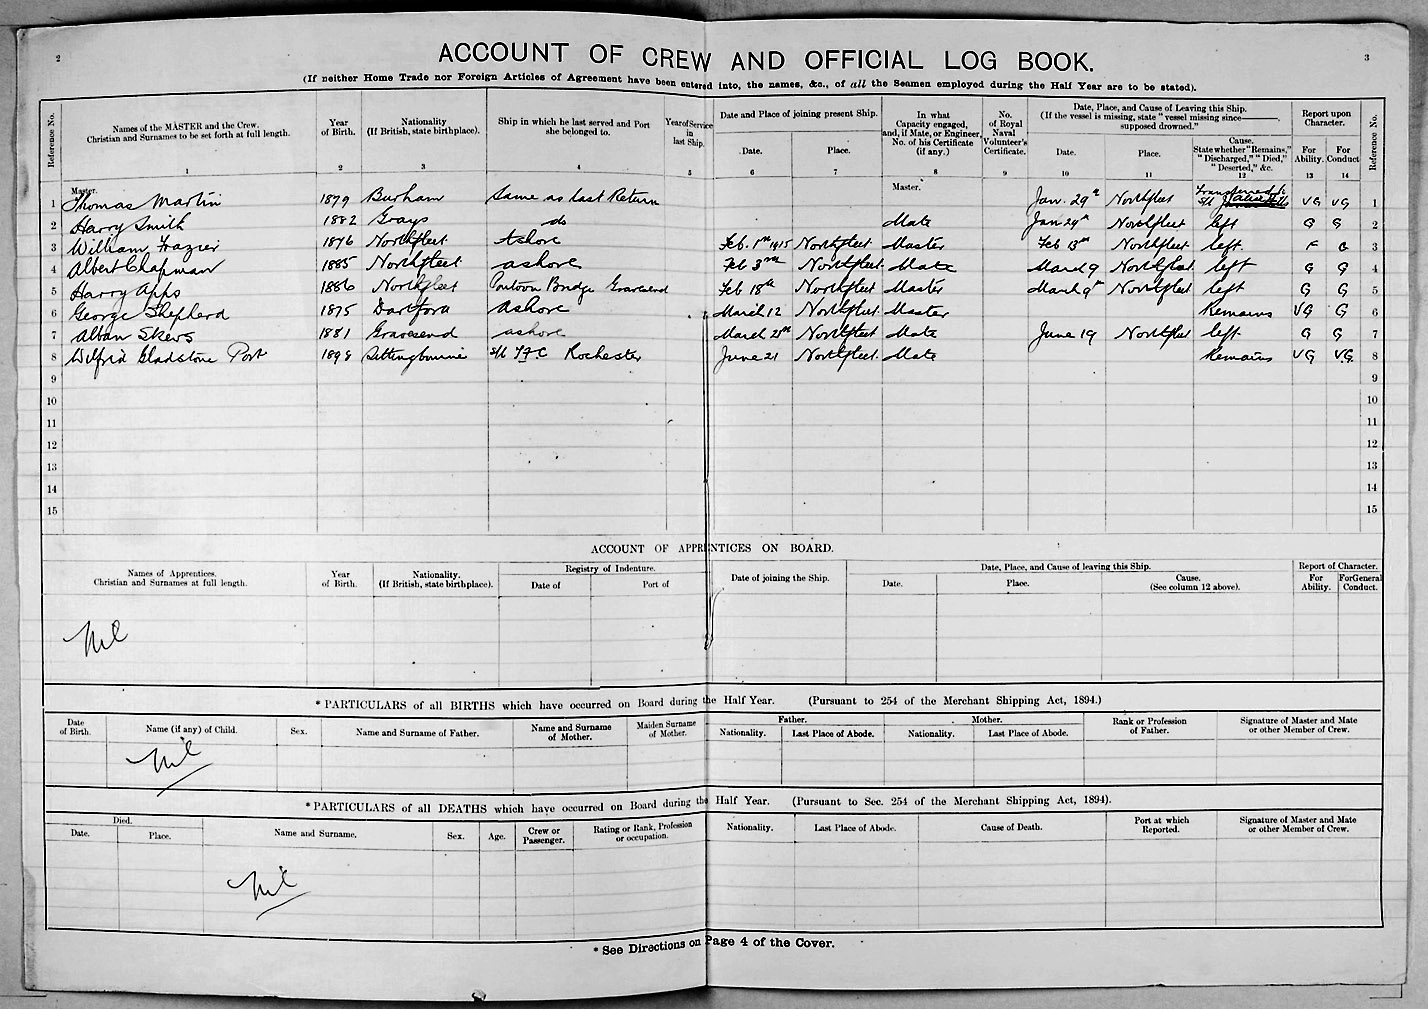 2
3
ACCOUNT OF CREW AND OFFICIAL LOG BOOK.
(If neither Home Trade nor Foreign Articles of Agreement have been entered into, the names, &c., of all the Seamen employed during the Half Year are to be stated).
Reference No.
Names of the MASTER and the Crew. Christian and Surnames to be set forth at full length. 1
Year of Birth. 2
Nationality (If British, state birthplace). 3
Ship in which he last served and Port she belonged to. 4
Year of Service in last Ship. 5
Date and Place of joining present Ship.
Date. 6
Place. 7
In what Capacity engaged, and, if Mate, or Engineer, No. of his Certificate (if any.) 8
No. of Royal Naval Volunteer's Certificate. 9
Date, Place, and Cause of Leaving this Ship. (If the vessel is missing, state "vessel missing since———, supposed drowned."
Date. 10
Place. 11
Cause. State whether "Remains," "Discharged," "Died," "Deserted," &c. 12
Report upon Character.
For Ability. 13
For Conduct 14
Reference No.
Master. Master.
1 Thomas Martin 1879 Burham Same as last Return Jan. 29th Northfleet Transferred to S/B VG VG 1
2 Harry Smith 1882 Grays do Mate Jan 29th Northfleet left G G 2
3 William Frazier 1876 Northfleet Ashore Feb. 1st 1915 Northfleet Master Feb 13th Northfleet left. F G 3
4 Albert Chapman 1885 Northfleet ashore Feb 3rd Northfleet Mate March 9 Northfleet left G G 4
5 Harry Apps 1886 Northfleet Pontoon Bridge Gravesend Feb 18th Northfleet Master March 9th Northfleet left G G 5
6 George Shepherd 1875 Dartford Ashore March 12 Northfleet Master Remains VG G 6
7 Alban Skews 1881 Gravesend ashore March 25th Northfleet Mate June 19 Northfleet left G G 7
8 Wilfrid Gladstone Port 1898 Sittingbourne Rochester June 21 Northfleet Mate Remains VG VG. 8
9 9
10 10
11 11
12 12
13 13
14 14
15 15
ACCOUNT OF APPRENTICES ON BOARD.
Names of Apprentices. Christian and Surnames at full length.
Year of Birth.
Nationality. (If British, state birthplace).
Registry of Indenture.
Date of
Port of
Date of joining the Ship.
Date, Place, and Cause of leaving this Ship.
Date.
Place.
Cause. (See column 12 above).
Report of Character.
For Ability.
For General Conduct.
Nil
* PARTICULARS of all BIRTHS which have occurred on Board during the Half Year. (Pursuant to 254 of the Merchant Shipping Act, 1894.)
Date of Birth.
Name (if any) of Child.
Sex.
Name and Surname of Father.
Name and Surname of Mother.
Maiden Surname of Mother.
Father.
Nationality.
Last Place of Abode.
Mother.
Nationality.
Last Place of Abode.
Rank or Profession of Father.
Signature of Master and Mate or other Member of Crew.
Nil
* PARTICULARS of all DEATHS which have occurred on Board during the Half Year. (Pursuant to Sec. 254 of the Merchant Shipping Act, 1894).
Died.
Date.
Place.
Name and Surname.
Sex.
Age.
Crew or Passenger.
Rating or Rank, Profession or occupation.
Nationality.
Last Place of Abode.
Cause of Death.
Port at which Reported.
Signature of Master and Mate or other Member of Crew.
Nil
* See Directions on Page 4 of the Cover.